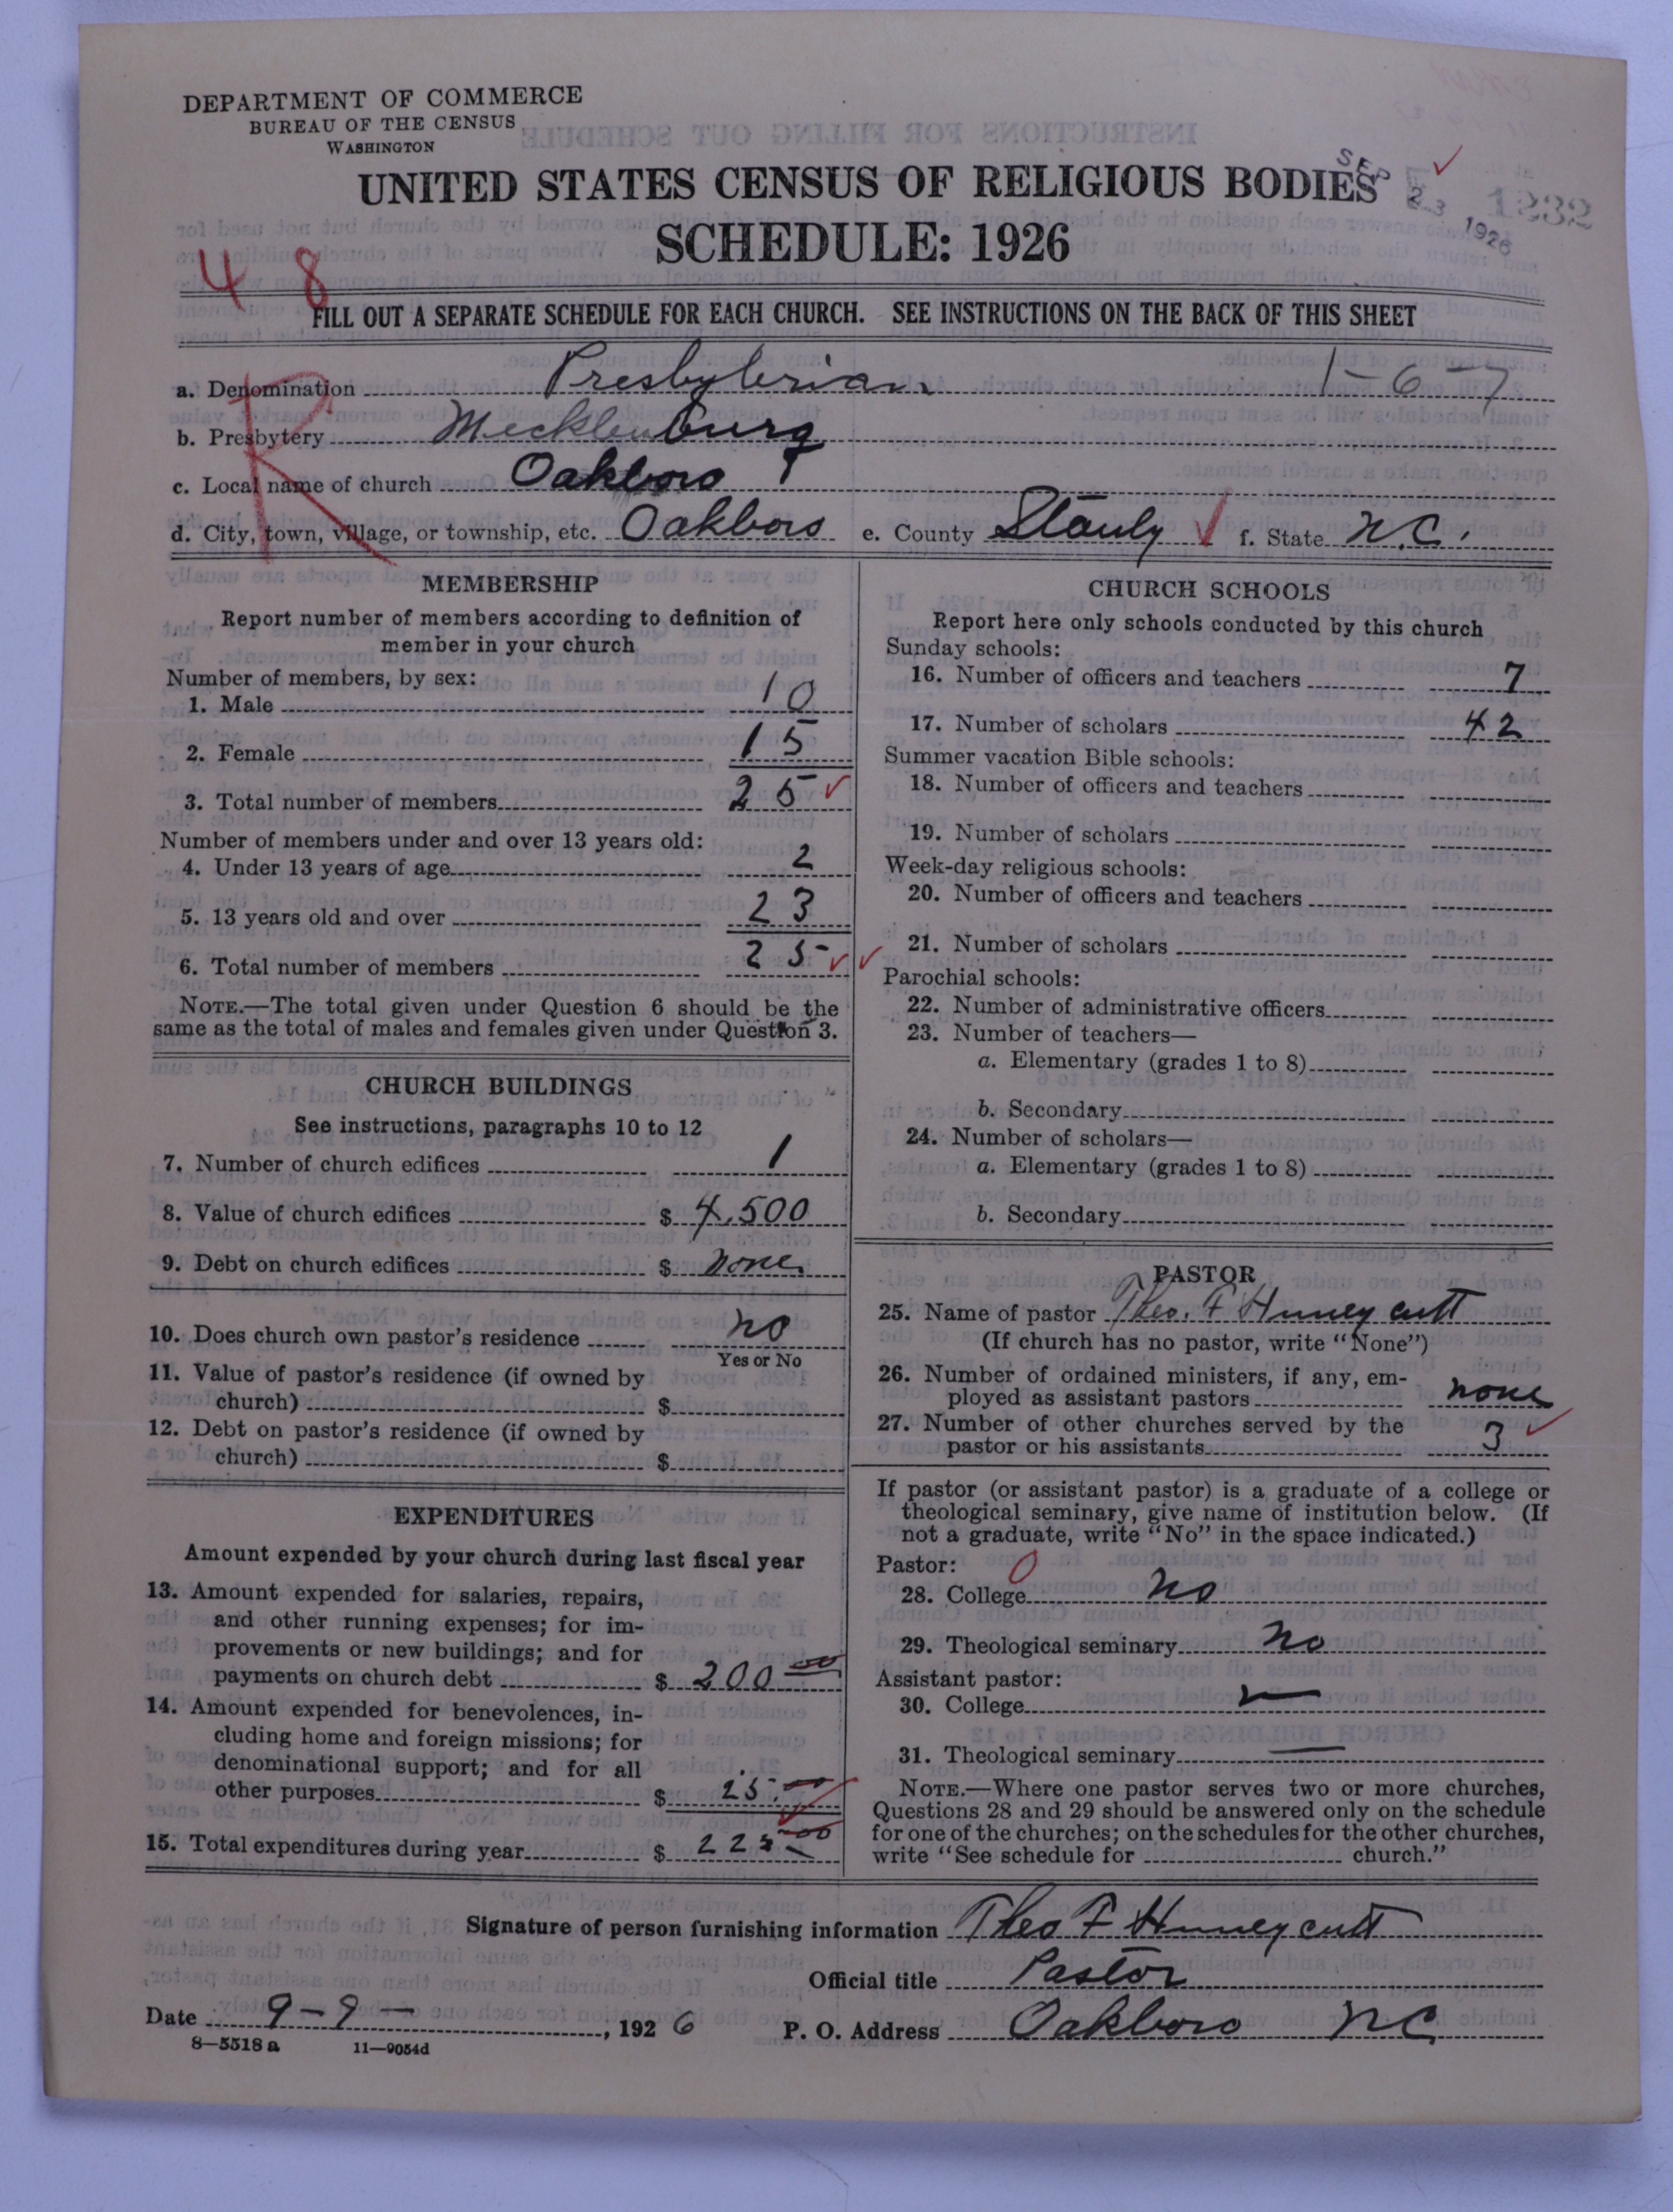 DEPARTMENT OF COMMERCE
BUREAU OF THE CENSUS
WASHINGTON
UNITED STATES CENSUS OF RELIGIOUS BODIES
SCHEDULE: 1926
SEP 23 1926
1232
4 8
FILL OUT A SEPARATE SCHEDULE FOR EACH CHURCH. SEE INSTRUCTIONS ON THE BACK OF THIS SHEET
R
a. Denomination Presbyterian 1-6-7
b. Presbytery Mecklenburg
c. Local name of church Oakboro
d. City, town, village, or township, etc. Oakboro e. County Stanly f. State N.C.
MEMBERSHIP
Report number of members according to definition of
member in your church
Number of members, by sex:
1. Male 10
2. Female 15
3. Total number of members 25
Number of members under and over 13 years old:
4. Under 13 years of age 2
5. 13 years old and over 23
6. Total number of members 25
NOTE.—The total given under Question 6 should be the
same as the total of males and females given under Question 3.
CHURCH BUILDINGS
See instructions, paragraphs 10 to 12
7. Number of church edifices 1
8. Value of church edifices $ 4,500
9. Debt on church edifices $ none
10. Does church own pastor's residence no
Yes or No
11. Value of pastor's residence (if owned by
church) $
12. Debt on pastor's residence (if owned by
church) $
EXPENDITURES
Amount expended by your church during last fiscal year
13. Amount expended for salaries, repairs,
and other running expenses; for im-
provements or new buildings; and for
payments on church debt $ 200 00
14. Amount expended for benevolences, in-
cluding home and foreign missions; for
denominational support; and for all
other purposes $ 25.00
15. Total expenditures during year $ 225 00
CHURCH SCHOOLS
Report here only schools conducted by this church
Sunday schools:
16. Number of officers and teachers 7
17. Number of scholars 42
Summer vacation Bible schools:
18. Number of officers and teachers
19. Number of scholars
Week-day religious schools:
20. Number of officers and teachers
21. Number of scholars
Parochial schools:
22. Number of administrative officers
23. Number of teachers—
a. Elementary (grades 1 to 8)
b. Secondary
24. Number of scholars—
a. Elementary (grades 1 to 8)
b. Secondary
PASTOR
25. Name of pastor Theo. F Hunneycutt
(If church has no pastor, write "None")
26. Number of ordained ministers, if any, em-
ployed as assistant pastors none
27. Number of other churches served by the
pastor or his assistants 3
If pastor (or assistant pastor) is a graduate of a college or
theological seminary, give name of institution below. (If
not a graduate, write "No" in the space indicated.)
Pastor: 0
28. College no
29. Theological seminary no
Assistant pastor:
30. College —
31. Theological seminary —
NOTE.—Where one pastor serves two or more churches,
Questions 28 and 29 should be answered only on the schedule
for one of the churches; on the schedules for the other churches,
write "See schedule for church."
Signature of person furnishing information Theo F Hunneycutt
Official title Pastor
Date 9-9-, 1926 P. O. Address Oakboro NC
8—5518a 11—9054d